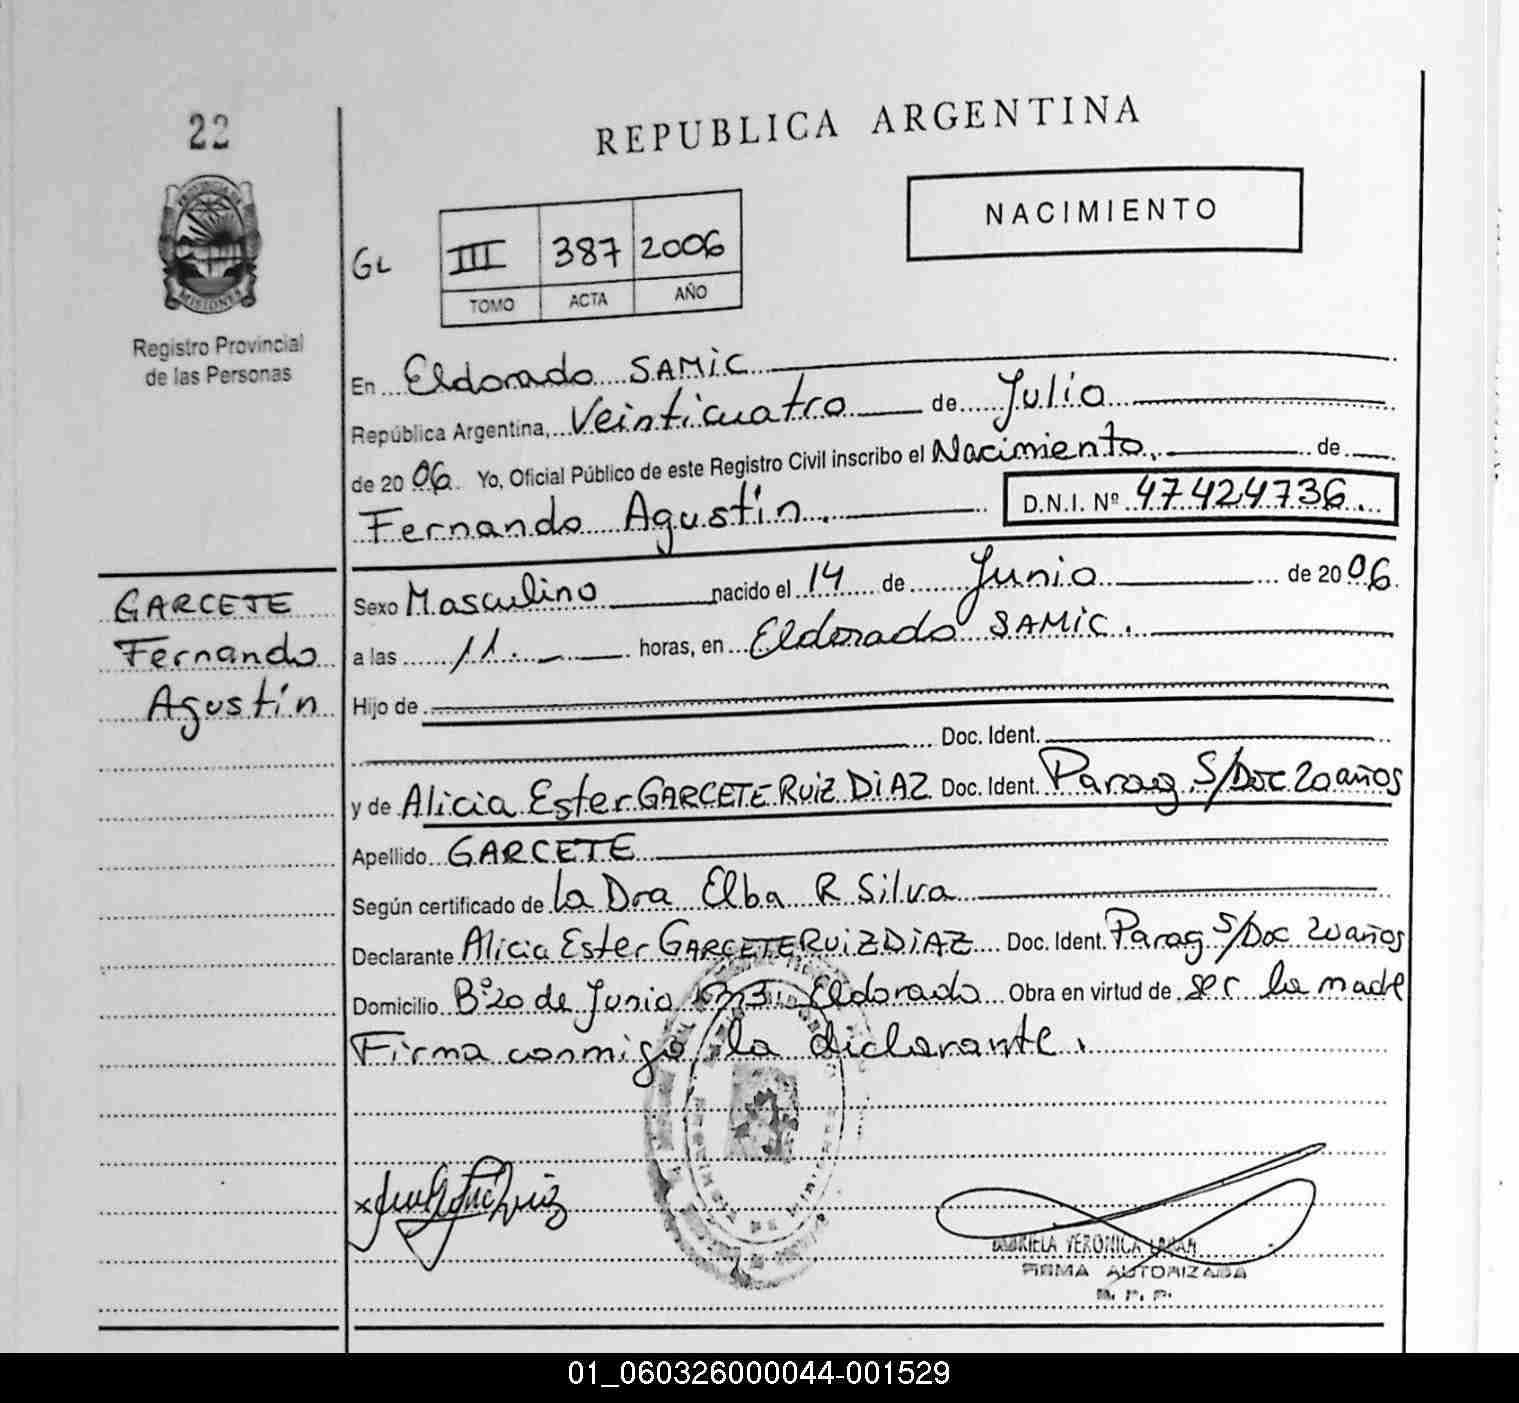 22
REPUBLICA ARGENTINA
NACIMIENTO
PROVINCIA DE
MISIONES
Registro Provincial
de las Personas
GL
III 387 2006
TOMO ACTA AÑO
En Eldorado SAMIC
República Argentina, Veinticuatro de Julio
de 20 06. Yo, Oficial Público de este Registro Civil inscribo el Nacimiento. de
Fernando Agustín. D.N.I. Nº 47424736.
GARCETE
Fernando
Agustín
Sexo Masculino nacido el 14 de Junio de 20 06.
a las 11. horas, en Eldorado SAMIC.
Hijo de
Doc. Ident.
y de Alicia Ester GARCETE RUIZ DIAZ Doc. Ident. Parag S/Doc 20 años
Apellido GARCETE
Según certificado de La Dra Elba R Silva
Declarante Alicia Ester GARCETE RUIZ DIAZ Doc. Ident. Parag S/Doc 20 años
Domicilio Bº 20 de Junio Eldorado Obra en virtud de ser la madre
Firma conmigo la declarante.
VERONICA
FIRMA AUTORIZADA
R. P. P.
01_060326000044-001529